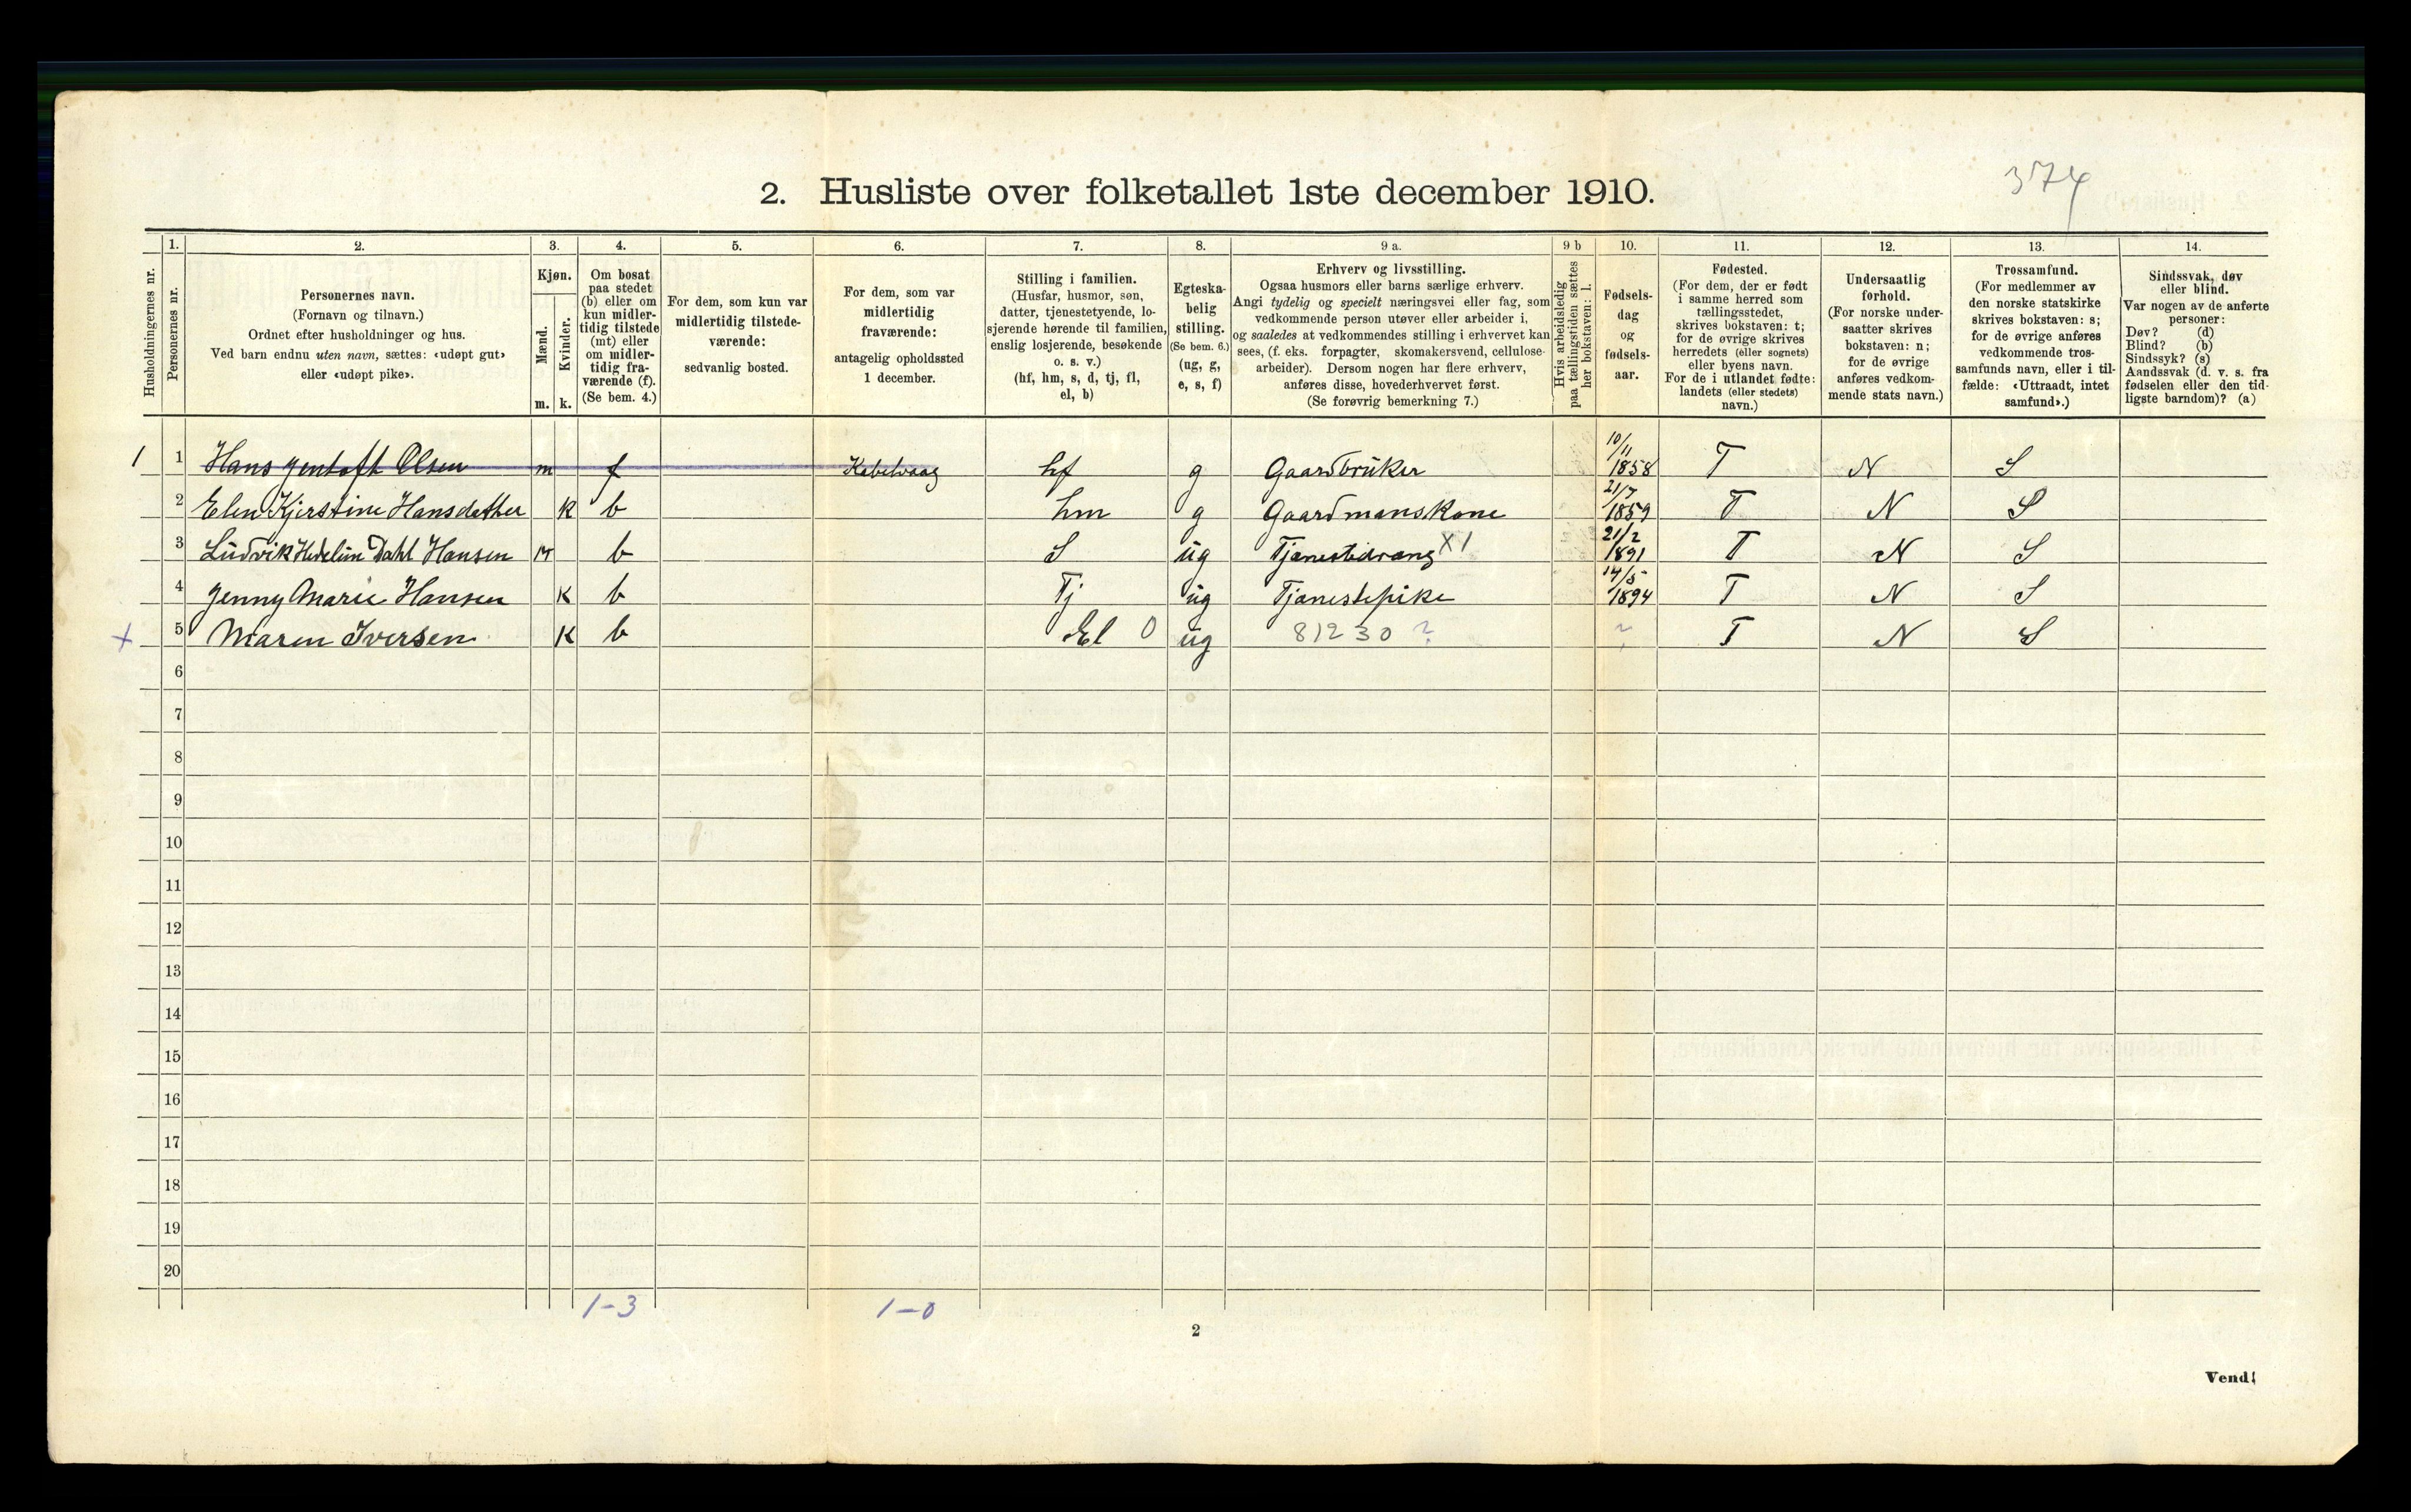 374
2. Husliste over folketallet 1ste december 1910.
Husholdningernes nr.
1.
Personernes nr.
2.
Personernes navn.
(Fornavn og tilnavn.)
Ordnet efter husholdninger og hus.
Ved barn endnu uten navn, sættes: «udøpt gut»
eller «udøpt pike».
3.
Kjøn.
Mænd.
Kvinder.
m. k.
4.
Om bosat
paa stedet
(b) eller om
kun midler-
tidig tilstede
(mt) eller
om midler-
tidig fra-
værende (f).
(Se bem. 4.)
5.
For dem, som kun var
midlertidig tilstede-
værende:
sedvanlig bosted.
6.
For dem, som var
midlertidig
fraværende:
antagelig opholdssted
1 december.
7.
Stilling i familien.
(Husfar, husmor, søn,
datter, tjenestetyende, lo-
sjerende hørende til familien,
enslig losjerende, besøkende
o. s. v.)
(hf, hm, s, d, tj, fl,
el, b)
8.
Egteska-
belig
stilling.
(Se bem. 6.)
(ug, g,
e, s, f)
9 a.
Erhverv og livsstilling.
Ogsaa husmors eller barns særlige erhverv.
Angi tydelig og specielt næringsvei eller fag, som
vedkommende person utøver eller arbeider i,
og saaledes at vedkommendes stilling i erhvervet kan
sees, (f. eks. forpagter, skomakersvend, cellulose-
arbeider). Dersom nogen har flere erhverv,
anføres disse, hovederhvervet først.
(Se forøvrig bemerkning 7.)
9 b
Hvis arbeidsledig
paa tællingstiden sættes
her bokstaven: l.
10.
Fødsels-
dag
og
fødsels-
aar.
11.
Fødested.
(For dem, der er født
i samme herred som
tællingsstedet,
skrives bokstaven: t;
for de øvrige skrives
herredets (eller sognets)
eller byens navn.
For de i utlandet fødte:
landets (eller stedets)
navn.)
12.
Undersaatlig
forhold.
(For norske under-
saatter skrives
bokstaven: n;
for de øvrige
anføres vedkom-
mende stats navn.)
13.
Trossamfund.
(For medlemmer av
den norske statskirke
skrives bokstaven: s;
for de øvrige anføres
vedkommende tros-
samfunds navn, eller i til-
fælde: «Uttraadt, intet
samfund».)
14.
Sindssvak, døv
eller blind.
Var nogen av de anførte
personer:
Døv? (d)
Blind? (b)
Sindssyk? (s)
Aandssvak (d. v. s. fra
fødselen eller den tid-
ligste barndom)? (a)
1 1 Hans Jentoft Olsen m f Kabelvaag hf g Gaardbruker 10/11 1858 T N S
2 Elen Kjerstine Hansdather K b hm g Gaardmanskone 21/7 1859 T N S
3 Ludvik Dahl Hansen M b S ug X1 21/2 1891 T N S
4 Jenny Marie Hansen K b Tj ug Tjanestepike 14/5 1894 T N S
x 5 Maren Iversen K b El 0 ug 81230 ? ? T N S
6
7
8
9
10
11
12
13
14
15
16
17
18
19
20
1-3 1-0
2
Vend!